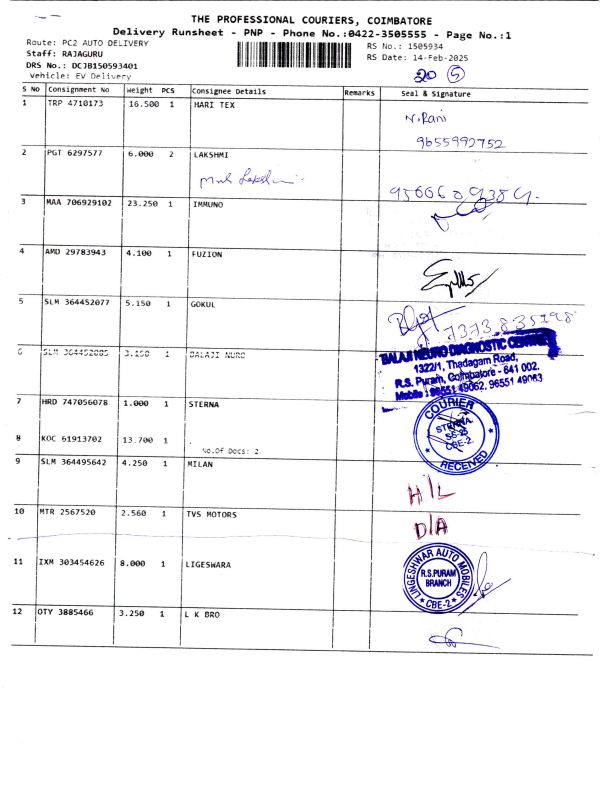 THE PROFESSIONAL COURIERS, COIMBATORE
Delivery Runsheet - PNP - Phone No.:0422-3505555 - Page No.:1
Route: PC2 AUTO DELIVERY
RS No.: 1505934
Staff: RAJAGURU
RS Date: 14-Feb-2025
DRS No.: DCJB150593401
Vehicle: EV Delivery
20 5
S No Consignment No Weight PCS Consignee Details Remarks Seal & Signature
1 TRP 4710173 16.500 1 HARI TEX
N.Rani
9655992752
2 PGT 6297577 6.000 2 LAKSHMI
3 MAA 706929102 23.250 1 IMMUNO
4 AMD 29783943 4.100 1 FUZION
5 SLM 364452077 5.150 1 GOKUL
7373835198
6 SLM 364452085 3.150 1 BALAJI NURO
BALAJI NEURO DIAGNOSTIC CENTRE
1322/1, Thadagam Road,
R.S. Puram, Coimbatore - 641 002.
Mobile : 96551 49062, 96551 49063
7 HRD 747056078 1.000 1 STERNA
COURIER
STERNA
CBE-2
RECEIVED
8 KOC 61913702 13.700 1
No.Of Docs: 2
9 SLM 364495642 4.250 1 MILAN
H/L
10 MTR 2567520 2.560 1 TVS MOTORS
D/A
11 IXM 303454626 8.000 1 LIGESWARA
LINGESHWAR AUTO MOBILES
R.S.PURAM
BRANCH
CBE-2
12 OTY 3885466 3.250 1 L K BRO